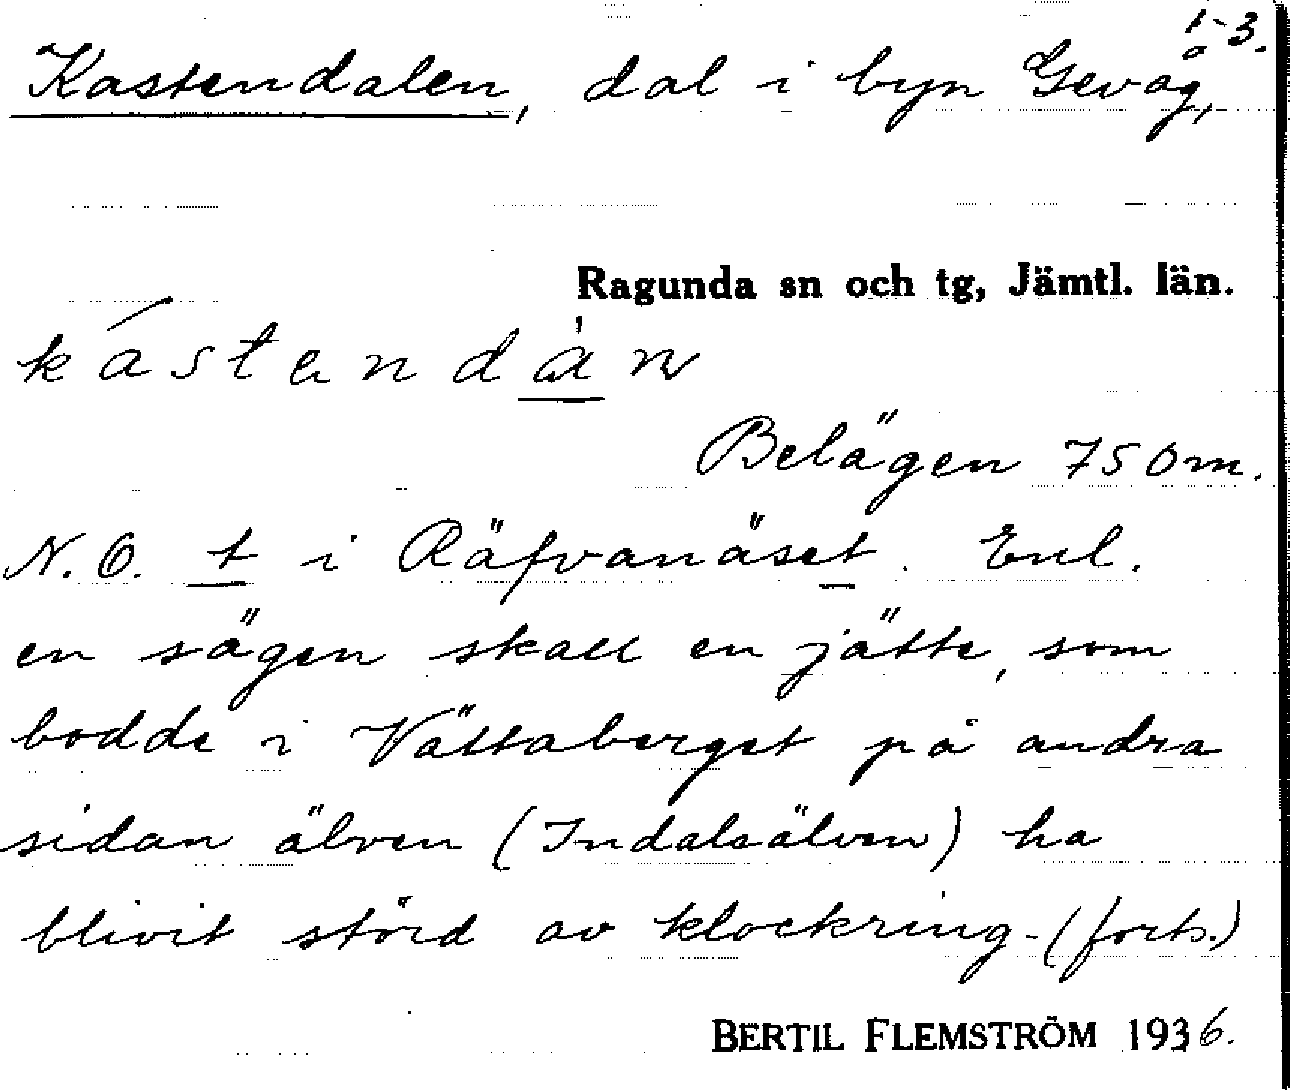 1-3.
Kastendalen, dal i byn Gevåg,
Ragunda sn och tg, Jämtl. län.
Belägen 750 m.
N. O. t i Räfvanäset. Enl.
en sägen skall en jätte, som
bodde i Vättaberget på andra
sidan älven (Indalsälven) ha
blivit störd av klockring-(forts.)
BERTIL FLEMSTRÖM 1936.